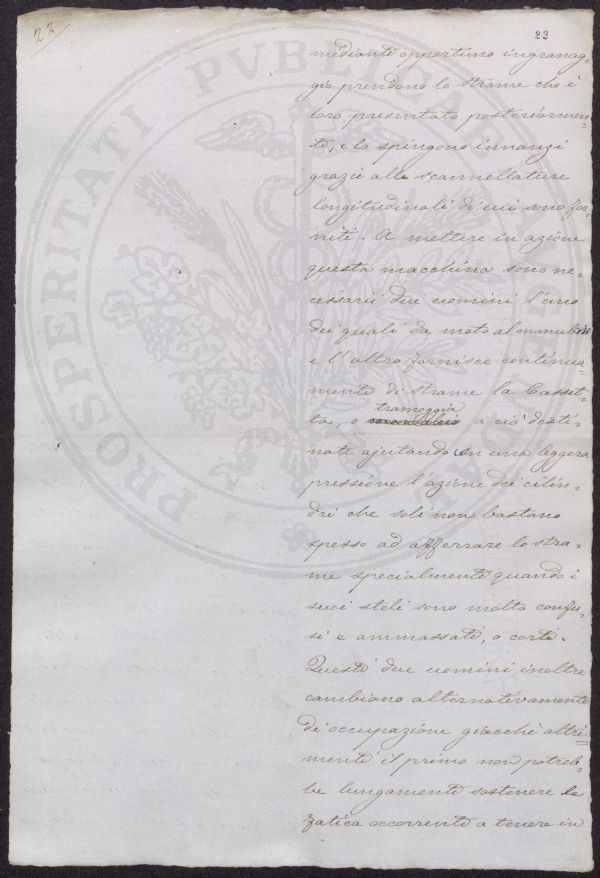 22
23
mediante opportuno ingranag-
gio prendono lo strame che è
loro presentato posteriormen-
te, e lo spingono innanzi
grazie alle scannellature
longitudinali di cui sono for-
niti. A mettere in azione
questa macchina sono ne-
cessarii due uomini l'uno
dei quali da moto al manubrio
e l'altro fornisce continua-
mente di strame la Casset-
ta, o tramoggia a ciò desti-
nate ajutando con una leggera
pressione l'azione dei cilin-
dri che soli non bastano
spesso ad afferrare lo stra-
me specialmente quando i
suoi steli sono molto confu-
si e ammassati, o corti.
Questi due uomini inoltre
cambiano alternativamente
di occupazione giacchè altri-
menti il primo non potreb-
be lungamente sostenere la
fatica occorrente a tenere in
PROSPERITATI PVBLICAE AVGENDAE